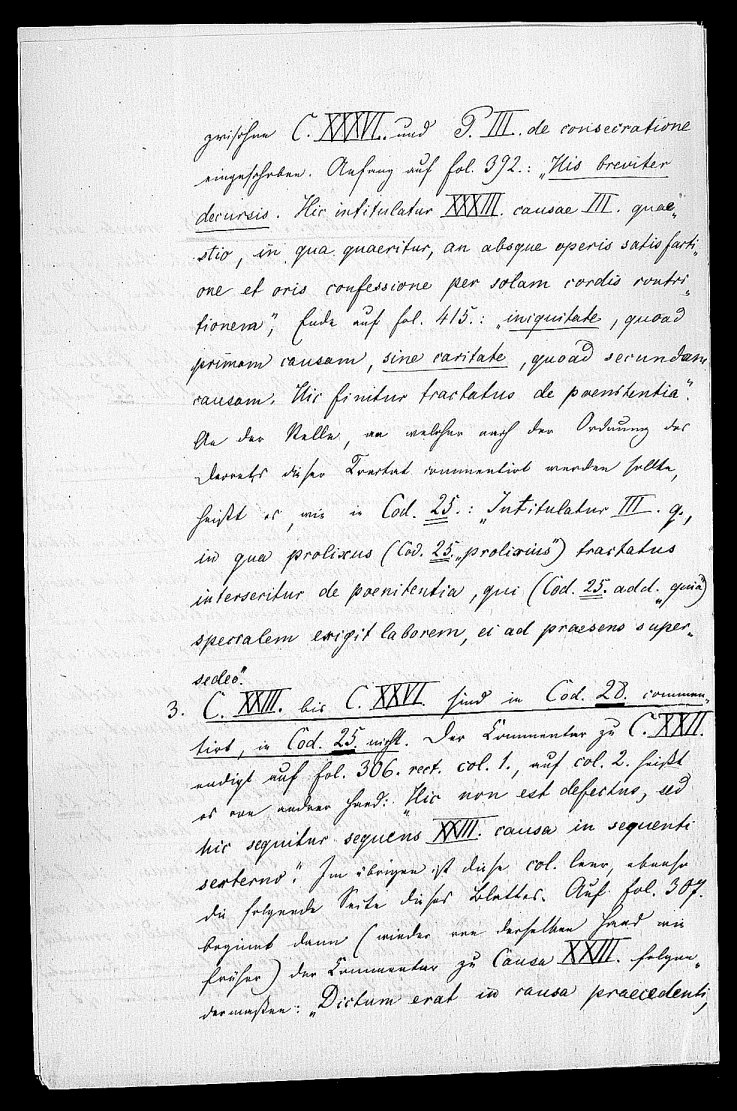 zwischen C. XXXVI. und P. III. de consecratione
eingeschoben. Anfang auf fol. 392.: „His breviter
decursis. Hic intitulatur XXXIII. causae III. quae„
stio, in qua quaeritur, an absque operis satisfacti„
one et oris confessione per solam cordis contri„
tionem“, Ende auf fol. 415.: „iniquitate, quoad
primam causam, sine caritate, quoad secundam
causam. Hic finitur tractatus de poenitentia“.
An der Stelle, an welcher nach der Ordnung des
Decrets dieser Tractat commentirt werden sollte,
heißt es, wie in Cod. 25.: „Intitulatur III. q.,
in qua prolixus (Cod. 25. „prolixius“) tractatus
interseritur de poenitentia, qui (Cod. 25. add. „quia“)
specialem exigit laborem, ei ad praesens super„
sedeo“.
3. C. XXIII. bis C. XXVI. sind in Cod. 28. commen„
tirt, in Cod. 25. nicht. Der Commentar zu C. XXII.
endigt auf fol. 306. rect. col. 1., auf col. 2. heißt
es von andrer Hand: „Hic non est defectus, sed
hic sequitur sequens XXIII. causa in sequenti
sexterno“. Im übrigen ist diese col. leer, ebenso
die folgende Seite dieses Blattes. Auf fol. 307.
beginnt dann (wieder von derselben Hand wie
früher) der Commentar zu Causa XXIII. folgen„
dermaßen: „Dictum erat in causa praecedenti,